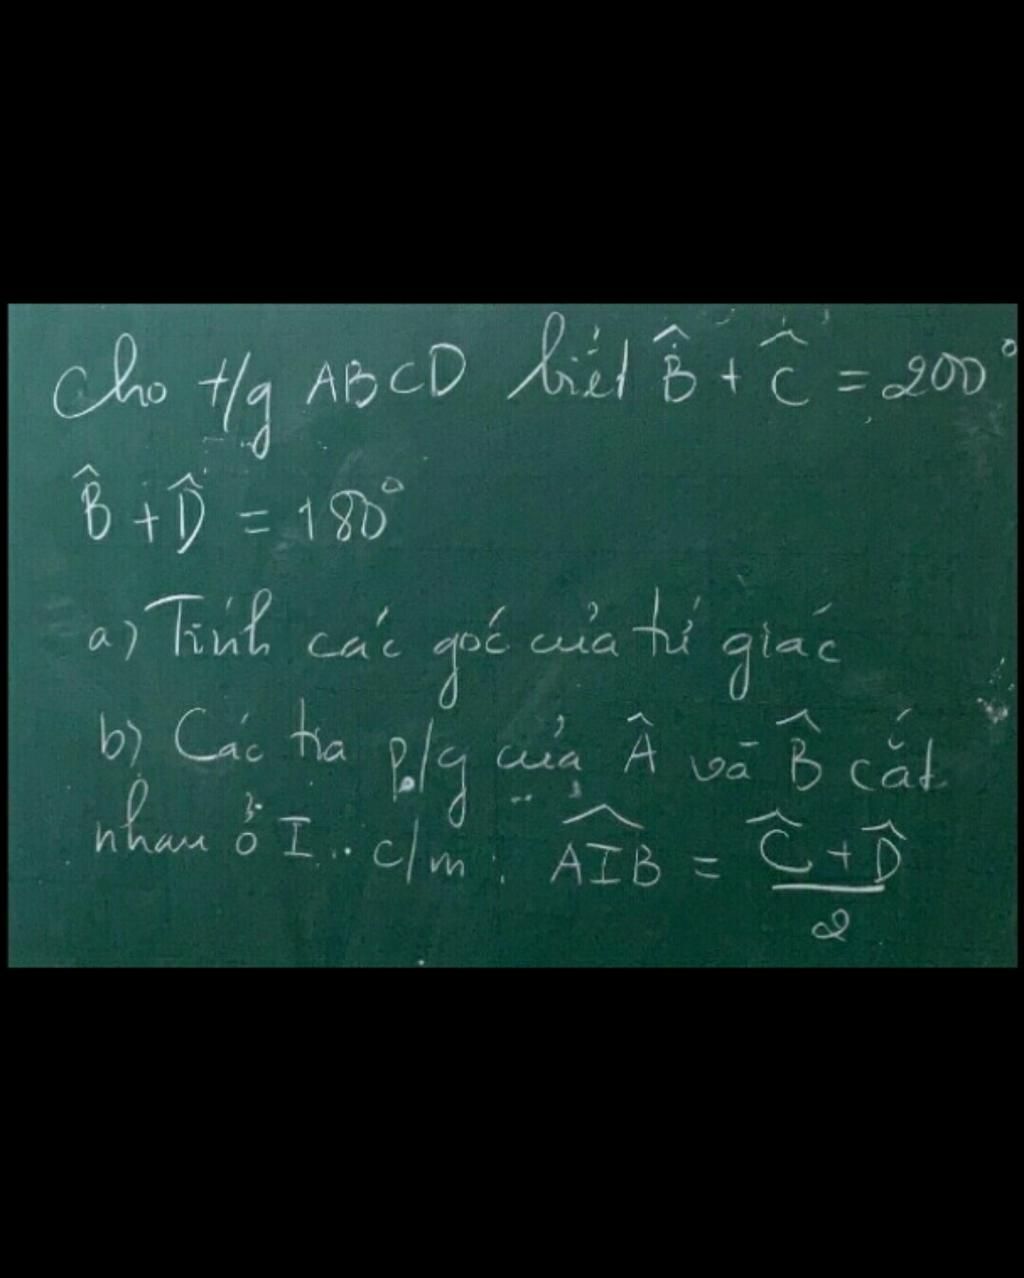 Cho t/g ABCD biết B̂ + Ĉ = 200°
B̂ + D̂ = 180°
a) Tính các góc của tứ giác
b) Các tia p/g của Â và B̂ cắt
nhau ở I.. c/m: AIB̂ = Ĉ + D̂ / 2